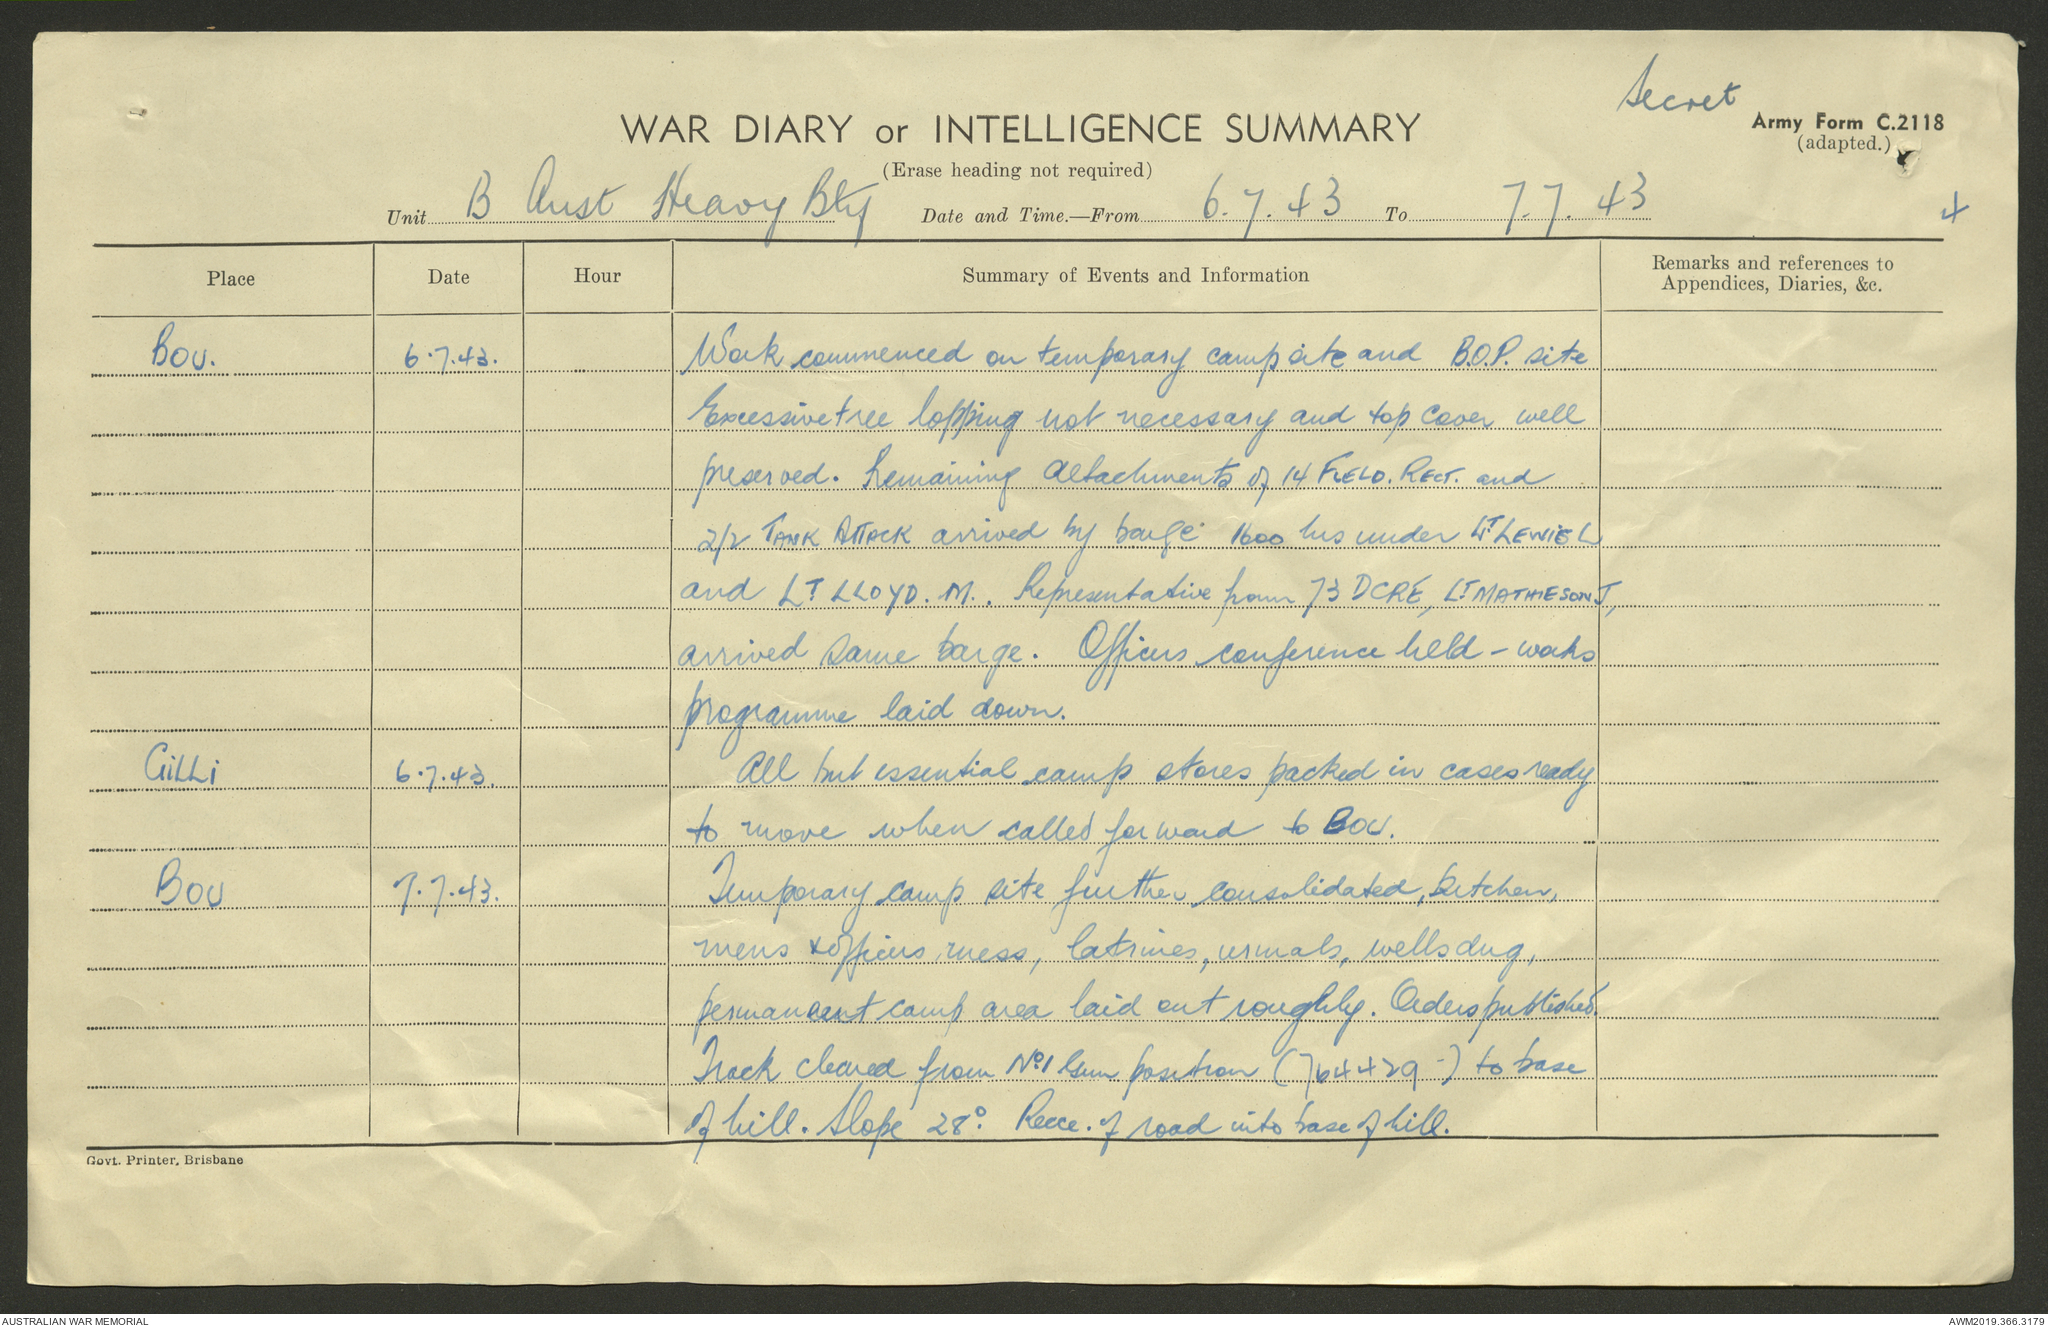 Secret
Army Form C.2118
(adapted.)
WAR DIARY or INTELLIGENCE SUMMARY
(Erase heading not required)
Unit B Aust Heavy Bty Date and Time.—From 6.7.43 To 7.7.43
4
Place Date Hour Summary of Events and Information Remarks and references to
Appendices, Diaries, &c.
BOU. 6.7.43. Work commenced on temporary camp site and B.O.P. site
Excessive tree lopping not necessary and top cover well
preserved. Remaining attachments of 14 FIELD. REGT. and
2/2 TANK ATTACK arrived by barge 1600 hrs under LT. LEWIE L
and LT LLOYD. M.. Representative from 73 DCRE, LT MATHIESON J,
arrived same barge. Officers conference held - works
programme laid down.
GILLI 6.7.43. All but essential camp stores packed in cases ready
to move when called forward to BOU.
BOU 7.7.43. Temporary camp site further consolidated, kitchen,
mens & officers mess, latrines, urinals, wells dug,
permanent camp area laid out roughly. Orders published.
Track cleared from No.1 Gun position (764429-) to base
of hill. Slope 28°. Recce. of road into base of hill.
Govt. Printer, Brisbane
AUSTRALIAN WAR MEMORIAL
AWM2019.366.3179